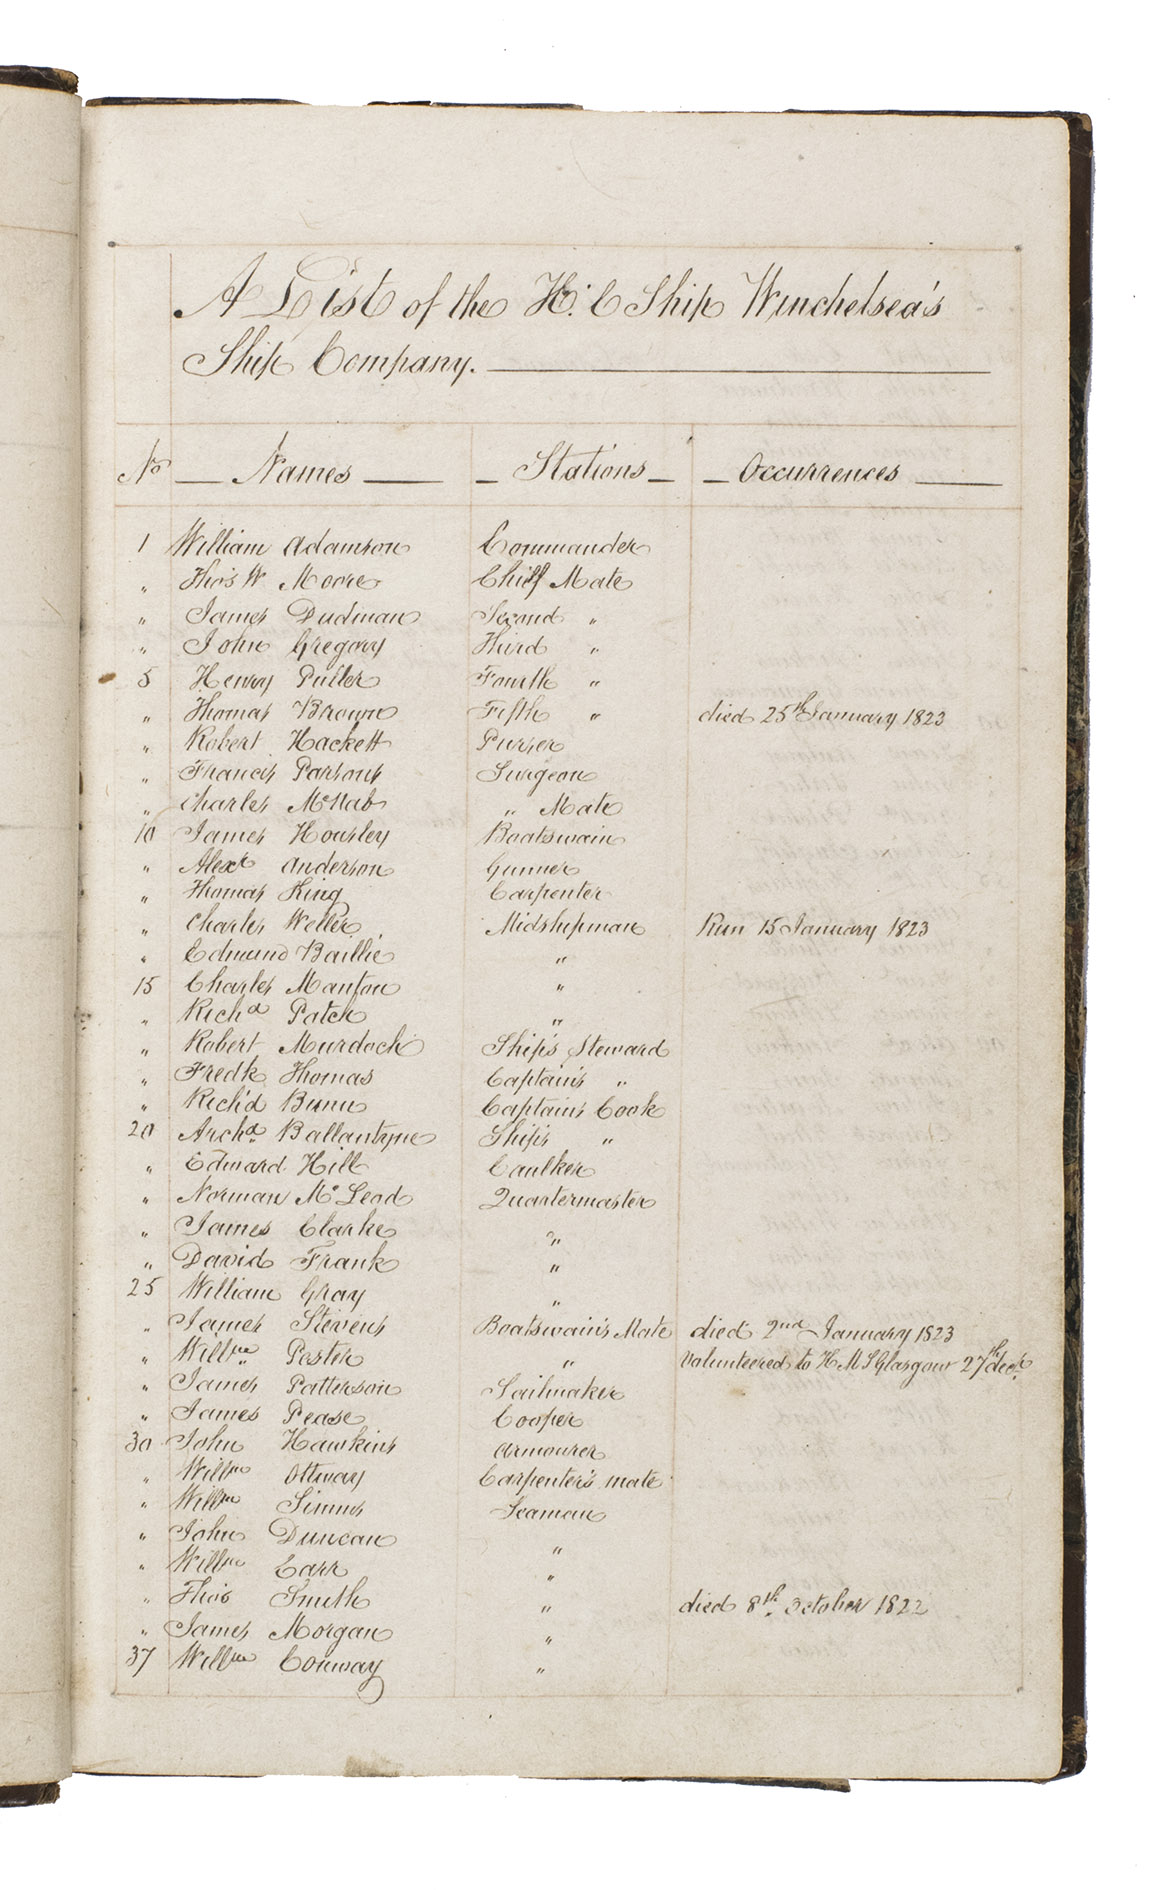 A List of the H. C Ship Winchelsea's
Ship Company.
No Names Stations Occurrences
1 William Adamson Commander
" Thos W Moore Chief Mate
" James Dudman Second "
" John Gregory Third "
5 Henry Puller Fourth "
" Thomas Brown Fifth " died 25th January 1823
" Robert Hackett Purser
" Francis Parsons Surgeon
" Charles McNab " Mate
10 James Housley Boatswain
" Alexr Anderson Gunner
" Thomas King Carpenter
" Charles Weller Midshipman Run 15 January 1823
" Edmund Baillie "
15 Charles Manton "
" Richd Patch "
" Robert Murdoch Ship's Steward
" Fredk Thomas Captain's "
" Rich'd Bunn Captains Cook
20 Archd Ballantyne Ship's "
" Edward Hill Caulker
" Norman McLeod Quartermaster
" James Clarke "
" David Frank "
25 William Gray "
" James Stevens Boatswain's Mate died 2nd January 1823
" Willm Pester " Volunteered to H M S Glasgow 27th decr
" James Patterson Sailmaker
" James Pease Cooper
30 John Hawkins Armourer
" Willm Ottway Carpenter's mate
" Willm Simms Seaman
" John Duncan "
" Willm Carr "
" Thos Smith " died 8th October 1822
" James Morgan "
37 Willm Conway "